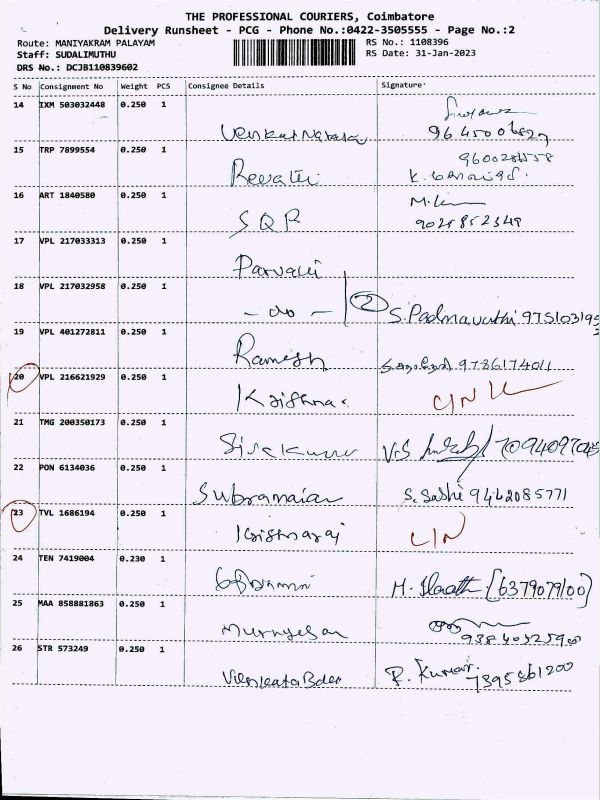 THE PROFESSIONAL COURIERS, Coimbatore
Delivery Runsheet - PCG - Phone No.:0422-3505555 - Page No.:2
Route: MANIYAKRAM PALAYAM
Staff: SUDALIMUTHU
DRS No.: DCJB110839602
RS No.: 1108396
RS Date: 31-Jan-2023
S No Consignment No Weight PCS Consignee Details Signature
14 IXM 503032448 0.250 1
15 TRP 7899554 0.250 1
Revathi 9600284558
16 ART 1840580 0.250 1
SQR 9025852349
17 VPL 217033313 0.250 1
Parvathi
18 VPL 217032958 0.250 1
- do - 2 S. Padmavathi
19 VPL 401272811 0.250 1
Ramesh 9786174011
20 VPL 216621929 0.250 1
Krishna
21 TMG 200350173 0.250 1
Sivakumar V.S
22 PON 6134036 0.250 1
Subramaian S. Sasthi 9442085771
23 TVL 1686194 0.250 1
Krishnaraj
24 TEN 7419004 0.230 1
(6379079100)
25 MAA 858881863 0.250 1
Murugesan
26 STR 573249 0.250 1
R. Kumar. 7395861200